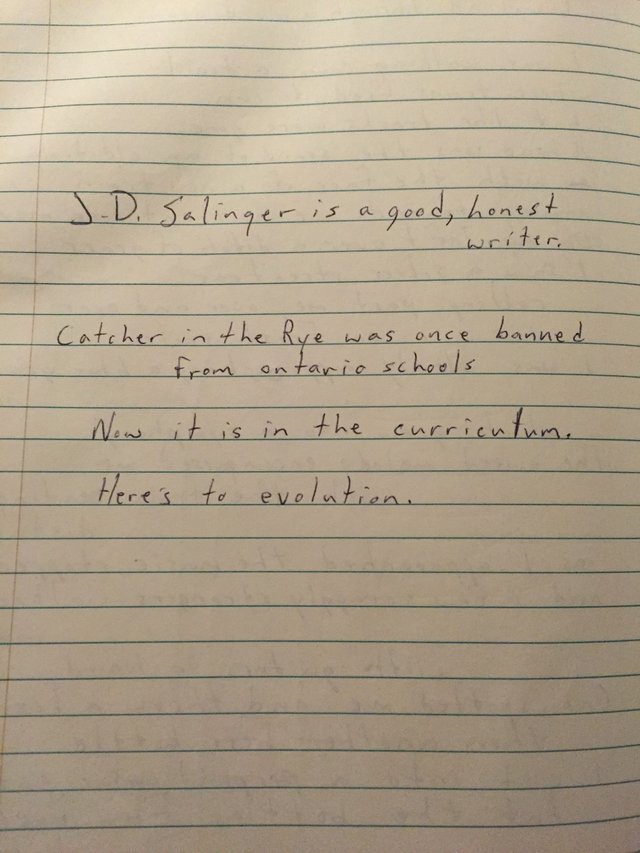 J.D. Salinger is a good, honest
writer.
Catcher in the Rye was once banned
from ontario schools
Now it is in the curriculum.
Here's to evolution.